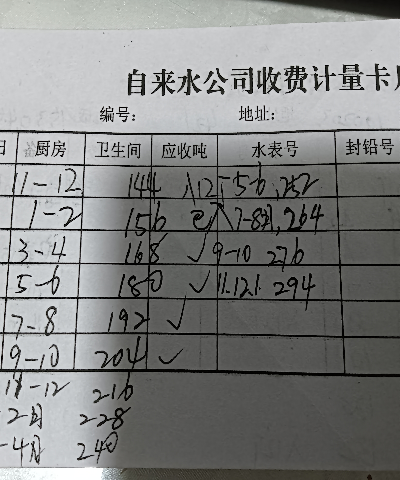 自来水公司收费计量卡
编号: 地址:
日 厨房 卫生间 应收吨 水表号 封铅号
11-12 144 5-6, 252
1-2 156 7-8月, 264
3-4 168 ✓ 9-10 276
5-6 180 ✓ 11.12.1. 294
7-8 192 ✓
9-10 204 ✓
11-12 216
-2月 228
-4月 240